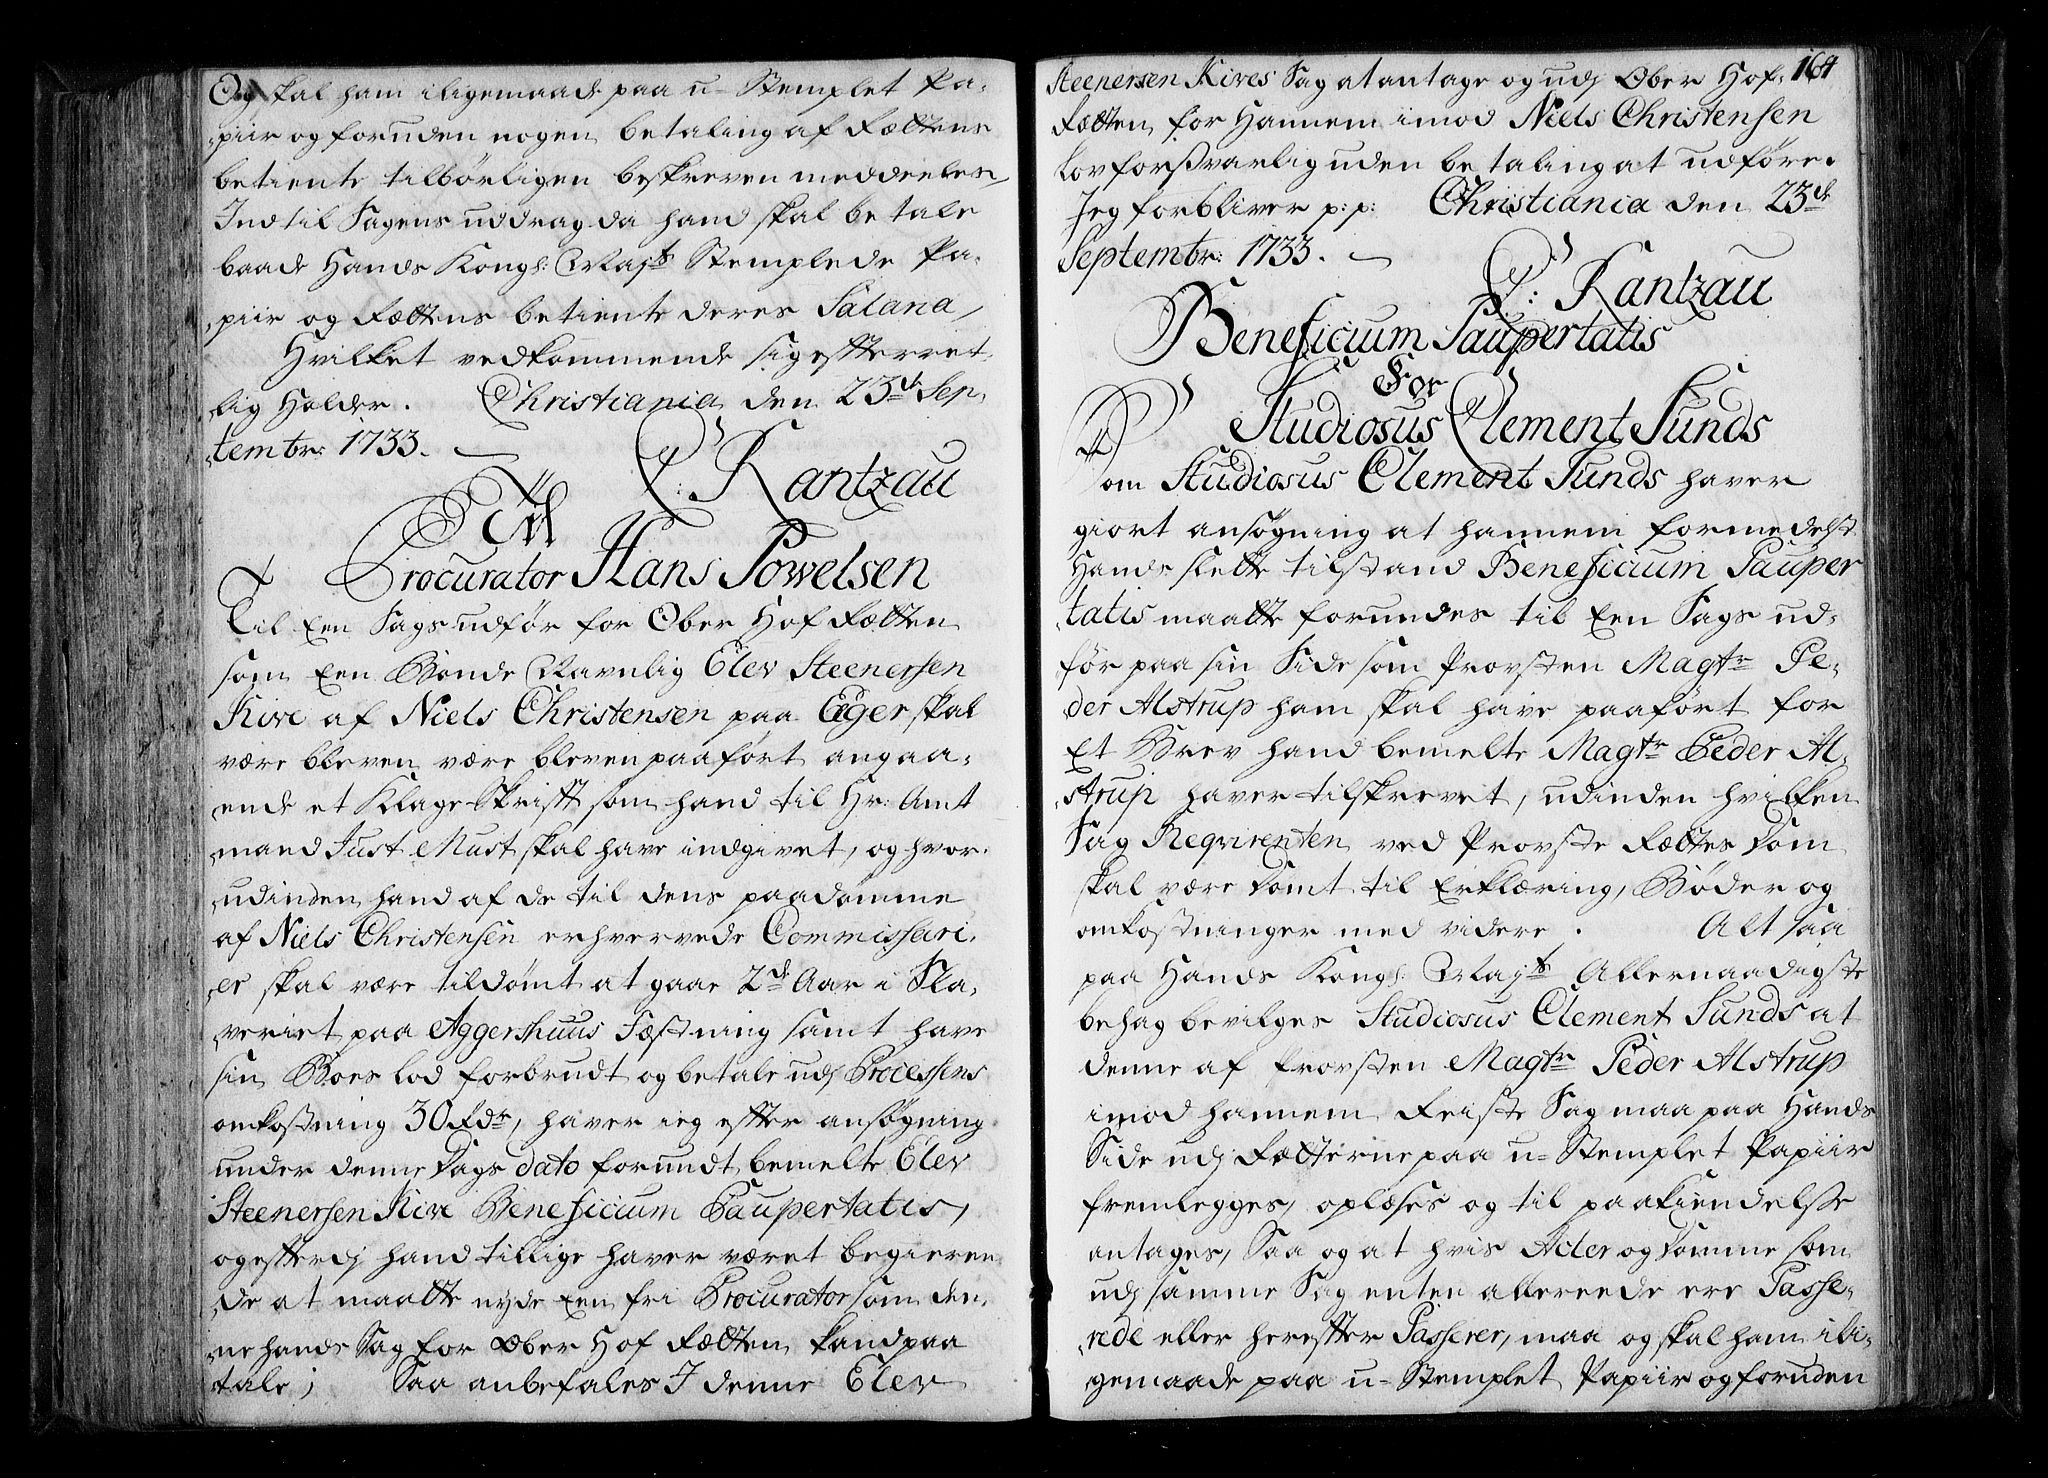 Og skal ham iligemaade paa u-Stemplet Pa-
piir og foruden nogen betaling af Rættens
betiente tilbørligen beskreven meddeeles,
Indtil Sagens uddrag da hand skal betale
baade Hands Kongl: Majts Stemplede Pa-
piir og Rættens betiente deres Salaria,
Hvilket vedkommende sig efterret-
lig Holder. Christiania den 23de Sep-
tembr: 1733.
C: Rantzau
Til
Procurator Hans Powelsen
Til Een Sags udfør for Ober Hof Rætten
som Een Bonde Navnlig Elev Steenersen
Kive af Niels Christensen paa Eger skal
være bleven være bleven paaført angaa-
ende et Klage-Skrifft som hand til Hr: Amt
mand Just Must skal have indgivet, og hvor-
udinden hand af de til dens paadømme
af Niels Christensen erhvervede Commissari-
er skal være tildømt at gaae 2de Aar i Sla-
veriet paa Aggershuus Fæstning samt have
sin Boes lod forbrudt og betale udj Processens
omkostning 30 Rdr, haver ieg efter ansøgning
under denne Dags dato forundt bemelte Elev
Steenersen Kive Beneficium Paupertatis,
og efterdj hand tillige haver været begieren-
de at maatte nyde Een fri Procurator som den-
ne hands Sag for Ober Hof Rætten kand paa
tale; Saa anbefales I denne Elev
164
Steenersen Kives Sag at antage og udj Ober Hof-
Rætten for Hannem imod Niels Christensen
lovforsvarlig uden betaling at udføre.
Jeg forbliver p: p: Christiania den 23de
Septembr: 1733.
C: Rantzau
Beneficium Paupertatis
For
Studiosus Clement Sunds
Som Studiosus Clement Sunds haver
giort ansøgning at hannem formedelst
Hands slette tilstand Beneficium Pauper
tatis maatte forundes til Een Sags ud-
før paa sin Side som Provsten Magtr Pe-
der Alstrup ham skal have paaført for
Et Brev hand bemelte Magtr Peder Al-
strup haver tilskrevet, udinden hvilken
Sag Reqvirenten ved Provste Rættes Dom
skal være Dømt til Erklæring, Bøder og
omkostninger med videre. Alt saa
paa Hands Kongl: Majts Allernaadigste
behag bevilges Studiosus Clement Sunds at
denne af Provsten Magtr Peder Alstrup
imod hannem Reiste Sag maa paa Hands
Side udj Rætterne paa u-Stemplet Papiir
fremlegges, oplæses og til paakiendelse
antages, Saa og at hvis Acter og Domme som
udj samme Sag enten allereede ere Passe-
rede eller herefter Passerer, maa og skal ham ili-
gemaade paa u-Stemplet Papiir og foruden